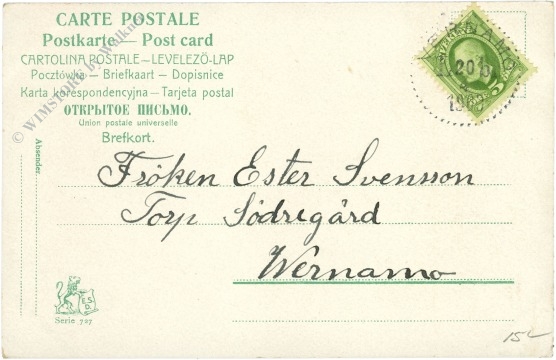 CARTE POSTALE
Postkarte — Post card
CARTOLINA POSTALE — LEVELEZÖ-LAP
Pocztówka — Briefkaart — Dopisnice
Karta korespondencyjna — Tarjeta postal
ОТКРЫТОЕ ПИСЬМО.
Union postale universelle
Brefkort.
Absender
Fröken Ester Svensson
Torp Södregård
Wernamo
E.S.D.
Serie 727
15